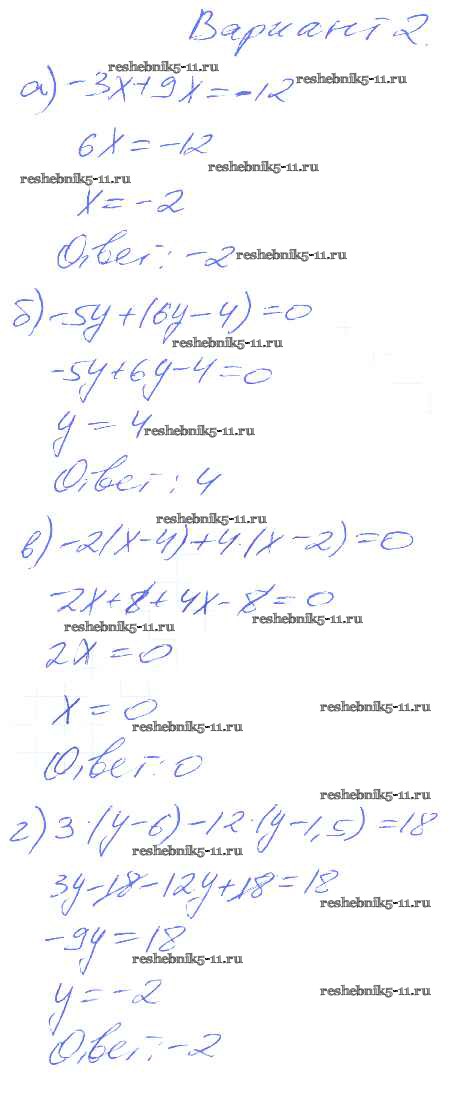 Вариант 2.
reshebnik5-11.ru
а) -3x+9x=-12 reshebnik5-11.ru
6x=-12
reshebnik5-11.ru
reshebnik5-11.ru
x=-2
Ответ: -2 reshebnik5-11.ru
б) -5y+(6y-4)=0
reshebnik5-11.ru
-5y+6y-4=0
y=4 reshebnik5-11.ru
Ответ: 4
reshebnik5-11.ru
в) -2(x-4)+4·(x-2)=0
-2x+8+4x-8=0
reshebnik5-11.ru
reshebnik5-11.ru
2x=0
x=0 reshebnik5-11.ru
reshebnik5-11.ru
Ответ: 0
reshebnik5-11.ru
г) 3·(y-6)-12·(y-1,5)=18
reshebnik5-11.ru
3y-18-12y+18=18
reshebnik5-11.ru
-9y=18
reshebnik5-11.ru
y=-2 reshebnik5-11.ru
Ответ: -2